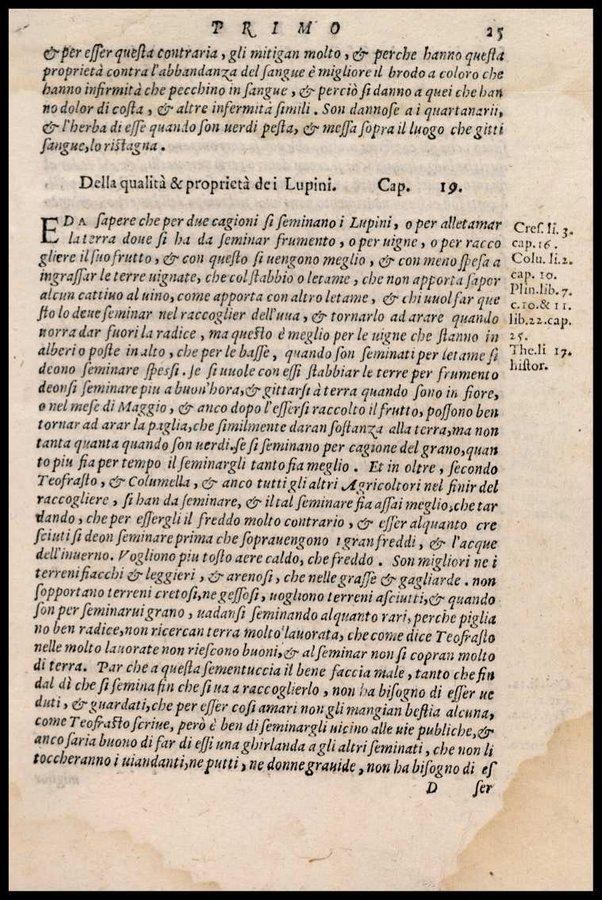 PRIMO 25
& per esser questa contraria, gli mitigan molto, & perche hanno questa
proprietà contra l'abbandanza del sangue è migliore il brodo a coloro che
hanno infirmità che pecchino in sangue, & perciò si danno a quei che han
no dolor di costa, & altre infermità simili. Son dannose a i quartanarii,
& l'herba di esse quando son uerdi pesta, & messa sopra il luogo che gitti
sangue, lo ristagna.
Della qualità & proprietà de i Lupini. Cap. 19.
E DA sapere che per due cagioni si seminano i Lupini, o per alletamar
la terra doue si ha da seminar frumento, o per uigne, o per racco
gliere il suo frutto, & con questo si uengono meglio, & con meno spesa a
ingrassar le terre uignate, che col stabbio o letame, che non apporta sapor
alcun cattiuo al uino, come apporta con altro letame, & chi uuol far que
sto lo deue seminar nel raccoglier dell'uua, & tornarlo ad arare quando
uorra dar fuori la radice, ma questo è meglio per le uigne che stanno in
alberi o poste in alto, che per le basse, quando son seminati per letame si
deono seminare spessi. Se si uuole con essi stabbiar le terre per frumento
deonsi seminare piu a buon'hora, & gittarsi à terra quando sono in fiore,
o nel mese di Maggio, & anco dopo l'essersi raccolto il frutto, possono ben
tornar ad arar la paglia, che similmente daran sostanza alla terra, ma non
tanta quanta quando son uerdi. se si seminano per cagione del grano, quan
to piu fia per tempo il seminargli tanto fia meglio. Et in oltre, secondo
Teofrasto, & Columella, & anco tutti gli altri Agricoltori nel finir del
raccogliere, si han da seminare, & il tal seminare fia assai meglio, che tar
dando, che per essergli il freddo molto contrario, & esser alquanto cre
sciuti si deon seminare prima che soprauengono i gran freddi, & l'acque
dell'inuerno. Vogliono piu tosto aere caldo, che freddo. Son migliori ne i
terreni fiacchi & leggieri, & arenosi, che nelle grasse & gagliarde. non
sopportano terreni cretosi, ne gessosi, uogliono terreni asciutti, & quando
son per seminarui grano, uadansi seminando alquanto rari, perche piglia
no ben radice, non ricercan terra molto lauorata, che come dice Teofrasto
nelle molto lauorate non riescono buoni, & al seminar non si copran molto
di terra. Par che a questa sementuccia il bene faccia male, tanto che fin
dal dì che si semina fin che si ua a raccoglierlo, non ha bisogno di esser ue
duti, & guardati, che per esser cosi amari non gli mangian bestia alcuna,
come Teofrasto scriue, però è ben di seminargli uicino alle uie publiche, &
anco saria buono di far di essi una ghirlanda a gli altri seminati, che non li
toccheranno i uiandanti, ne putti, ne donne grauide, non ha bisogno di es
D ser
Cres. li. 3.
cap. 16.
Colu. li. 2.
cap. 10.
Plin. lib. 7.
c. 10. & 11.
lib. 22. cap.
25.
The. li 17.
histor.